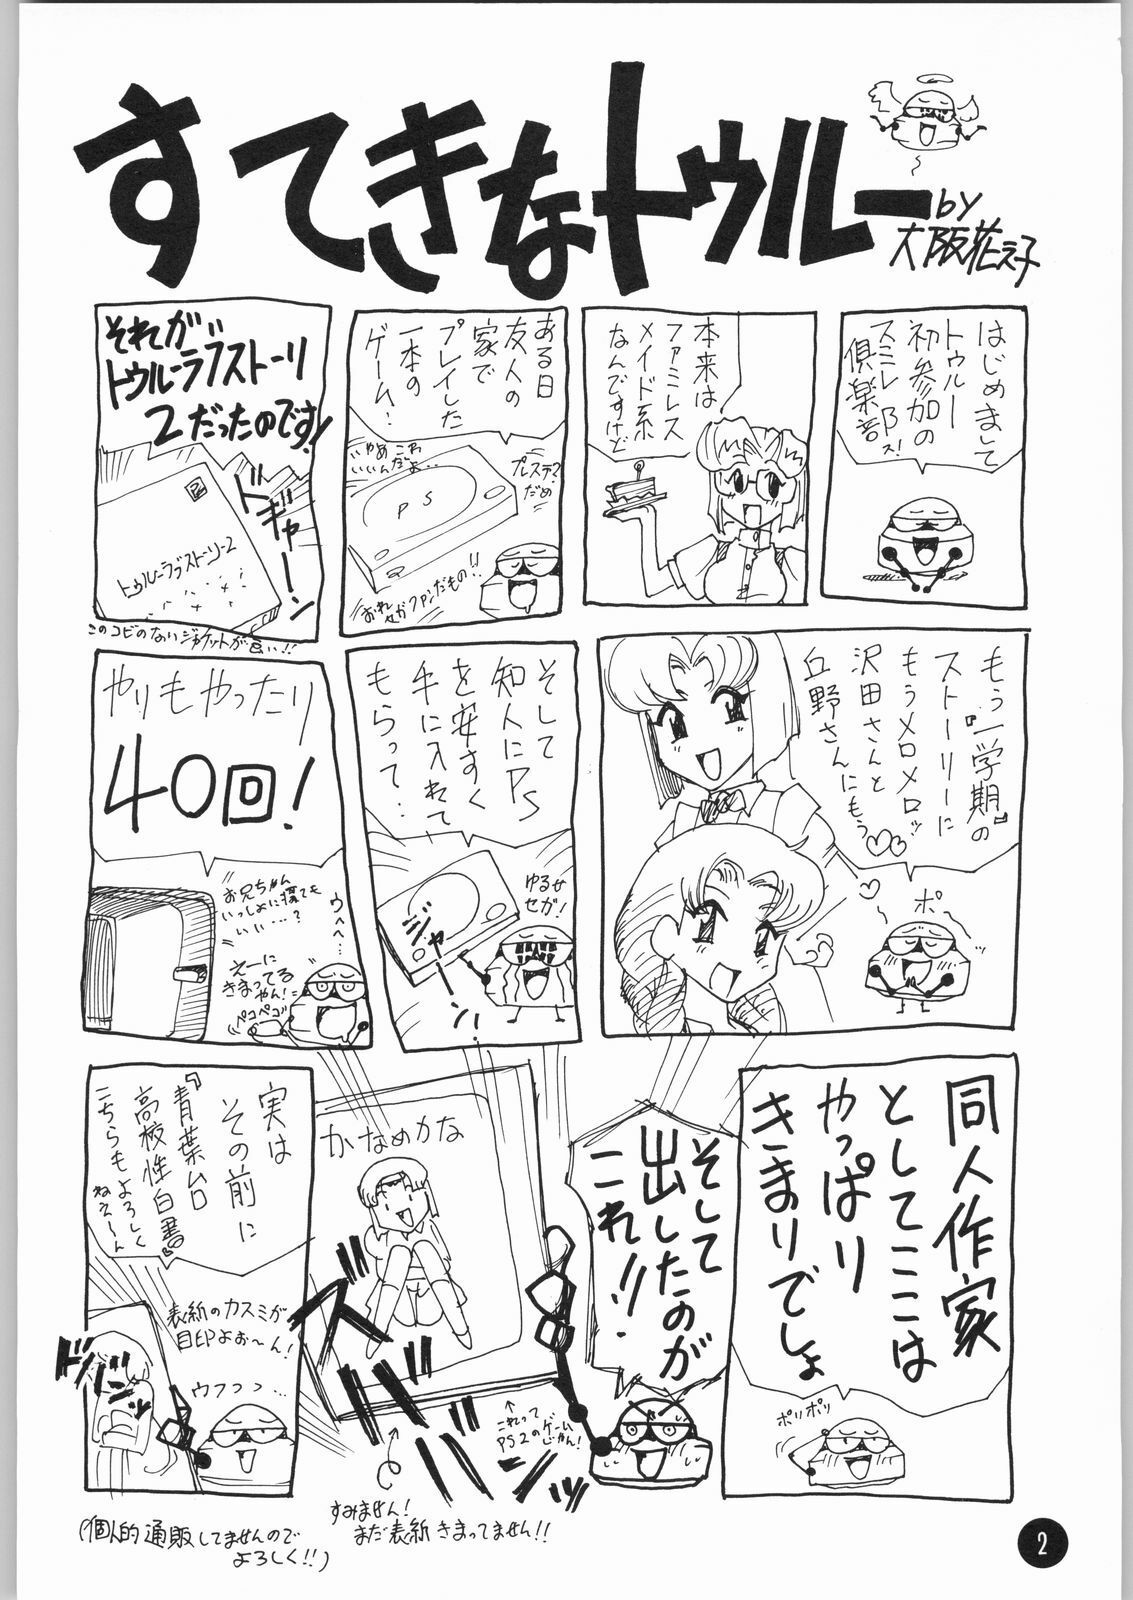 すてきなトゥルー
by
大阪花え子
はじめまして
トゥルー
初参加の
スミレ
倶楽部ス!
本来は
ファミレス
メイド系
なんですけど
ある日
友人の
家で
プレイした
一本の
ゲーム!
いやぁこれ
いいんだよ…
プレステ?
だめ
PS
おれ
セガファンだもの!!
それが
トゥルーラブストーリー
2だったのです!
ドギャーン
トゥルーラブストーリー2
このコビのないジャケットが良い!!
もう『一学期』の
ストーリーに
もうメロメロッ
沢田さんと
丘野さんにもう♡♡
ポッ
そして
知人にPS
を安すく
手に入れて
もらって…
ゆるせ
セガ!
ジャーン!
やりもやったり
40回!
お兄ちゃん
いっしょに寝ても
いい…?
えーに
きまってる
やん!
ペコペコ
ウヘヘ…
同人作家
としてここは
やっぱり
きまりでしょ
ポリポリ
そして
出したのが
これ!!
かなめかな
ズババンッ
↑
これって
PS2のゲーム
じゃん!
すみません!
まだ表紙きまってません!!
実は
その前に
『青葉ムロ
高校性白書』
こちらもよろしく
ねえーん
表紙のカスミが
目印よぉ〜ん!
ウフっっ…
ドバンッ
(個人的通販してませんので
よろしく!!)
2